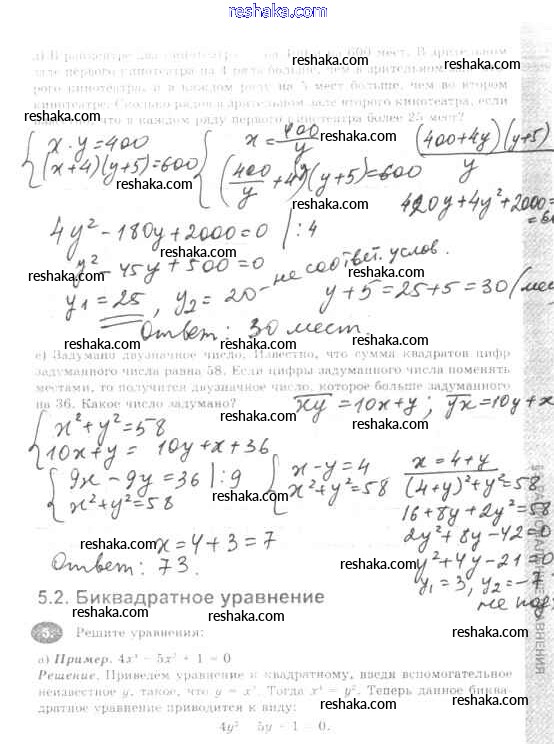 reshaka.com
д) В райцентре два кинотеатра на 400 и на 600 мест. В зрительном
зале первого кинотеатра на 4 ряда больше, чем в зрительном зале
рого кинотеатра, и в каждом ряду на 5 мест больше, чем во втором
кинотеатре. Сколько рядов в зрительном зале второго кинотеатра, если
что в каждом ряду первого кинотеатра более 25 мест?
{ x · y = 400
(x+4)(y+5)=600
{ x = 400/y
(400/y + 4)(y+5)=600
(400+4y)(y+5)
y
420y+4y²+2000=
4y² - 180y + 2000 = 0 | : 4
y² - 45y + 500 = 0
y₁ = 25, y₂ = 20 - не соответ. услов.
y+5 = 25+5 = 30 (мес
Ответ: 30 мест.
е) Задумано двузначное число. Известно, что сумма квадратов цифр
задуманного числа равна 58. Если цифры задуманного числа поменять
местами, то получится двузначное число, которое больше задуманного
на 36. Какое число задумано?
xy = 10x+y; yx = 10y+x
{ x²+y²=58
10x+y = 10y+x+36
{ 9x - 9y = 36 | : 9
x²+y²=58
{ x-y=4
x²+y²=58
x = 4+y
(4+y)²+y²=58
16+8y+2y²=58
2y²+8y-42=0
y²+4y-21=0
y₁=3, y₂=-7
не под
x = 4+3 = 7
Ответ: 73.
5.2. Биквадратное уравнение
5. Решите уравнения:
а) Пример. 4x⁴ - 5x² + 1 = 0
Решение. Приведем уравнение к квадратному, введя вспомогательное
неизвестное y, такое, что y = x². Тогда x⁴ = y². Теперь данное биква-
дратное уравнение приводится к виду:
4y² - 5y + 1 = 0.
reshaka.com